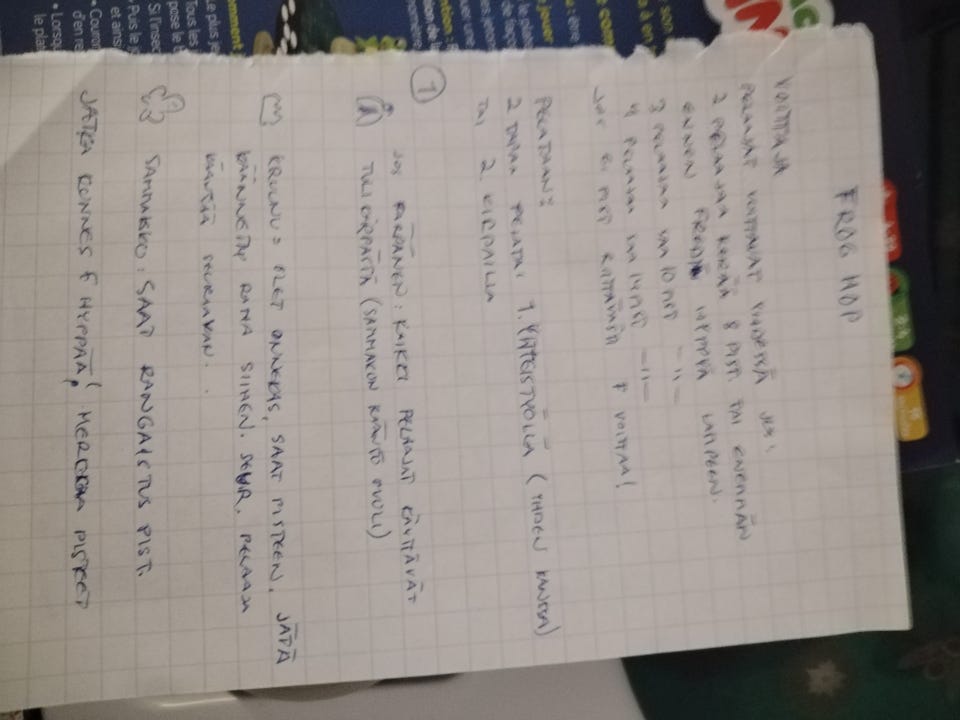 FROG HOP
VOITTAJA
PELAAJAT VOITTAVAT YHDESSÄ JOS:
2 PELAAJAA KERÄÄ 8 PIST. TAI ENEMMÄN
ENNEN FREDIN HYPPYÄ LAMPEEN.
3 PELAAJA SAA 10 PIST -11-
4 PELAAJA SAA 14 PIST -11-
JOS EI PIST RIITTÄVÄSTI F VOITTAA!
PELATAAN:
2 TAPAA PELATA: 1. YHTEISTYÖLLÄ (YHDEN KANSSA)
TAI 2 KILPAILLA
1
JOS KÄRPÄNEN: KAIKKI PELAAJAT KÄYTTÄVÄT
TULIKÄRPÄSTÄ (SAMMAKON KÄÄNTÖ PUOLI)
KRUUNU: OLET ONNEKAS, SAAT PISTEEN. JÄTÄ
KÄÄNNETTY RAHA SIIHEN. SEUR. PELAAJA
KÄYTTÄÄ SEURAAVAN.
SAMMAKKO: SAAT RANGAISTUS PIST.
JATKA KUNNES F HYPPÄÄ, MERKKAA PISTEET